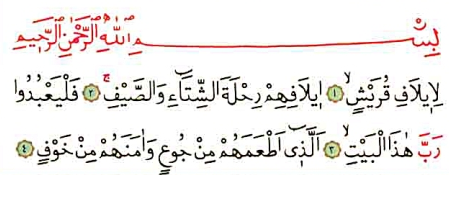 بِسْمِ اللّٰهِ الرَّحْمٰنِ الرَّحِيمِ
لِاِيلَافِ قُرَيْشٍۙ ﴿١﴾ اٖيلَافِهِمْ رِحْلَةَ الشِّتَٓاءِ وَالصَّيْفِۚ ﴿٢﴾ فَلْيَعْبُدُوا
رَبَّ هٰذَا الْبَيْتِۙ ﴿٣﴾ اَلَّذٖٓي اَطْعَمَهُمْ مِنْ جُوعٍ وَاٰمَنَهُمْ مِنْ خَوْفٍ ﴿٤﴾